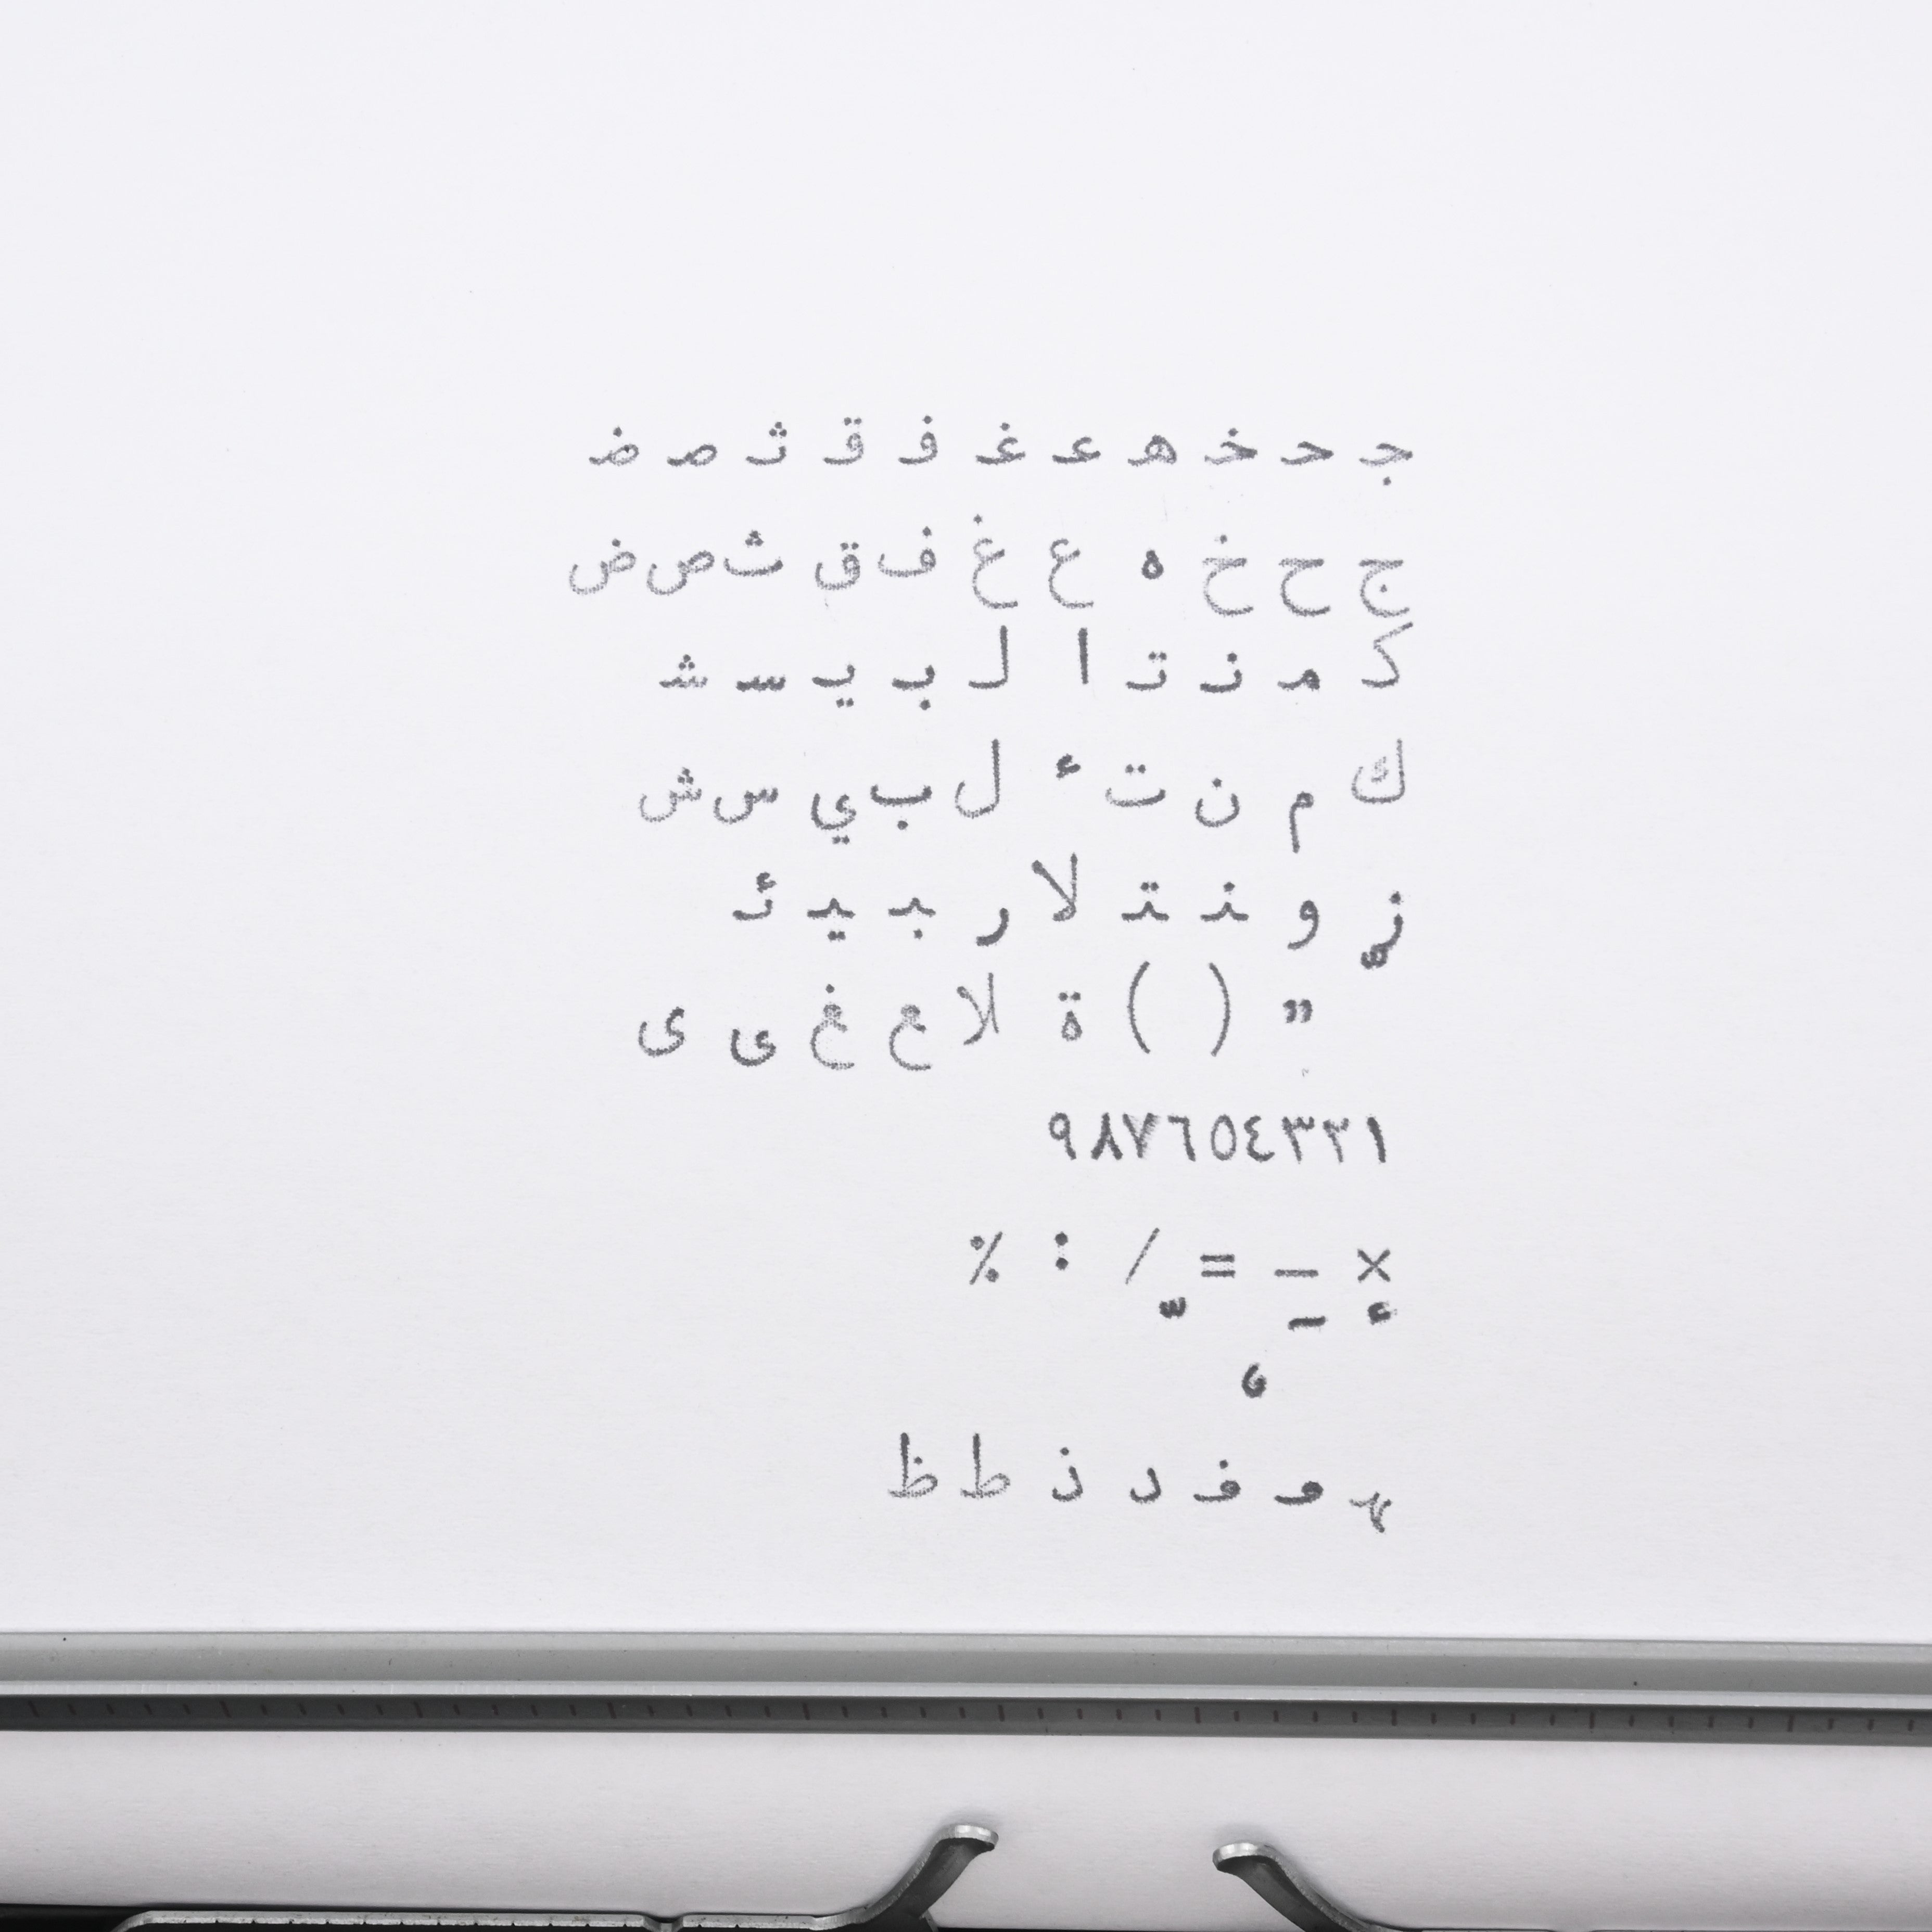 جـ حـ خـ هـ عـ غـ فـ قـ ثـ صـ ضـ
ج ح خ ه ع غ ف ق ث ص ض
كـ مـ نـ تـ ا لـ بـ يـ سـ شـ
ك م ن ت ء ل ب ي س ش
ز و ـنـ ـتـ لا ر ـبـ ـيـ ئـ
" ) ( ة لا ـع ـغ ـى ى
١٢٣٤٥٦٧٨٩
× – = / : %
ـهـ ـو ـفـ د ذ ط ظ